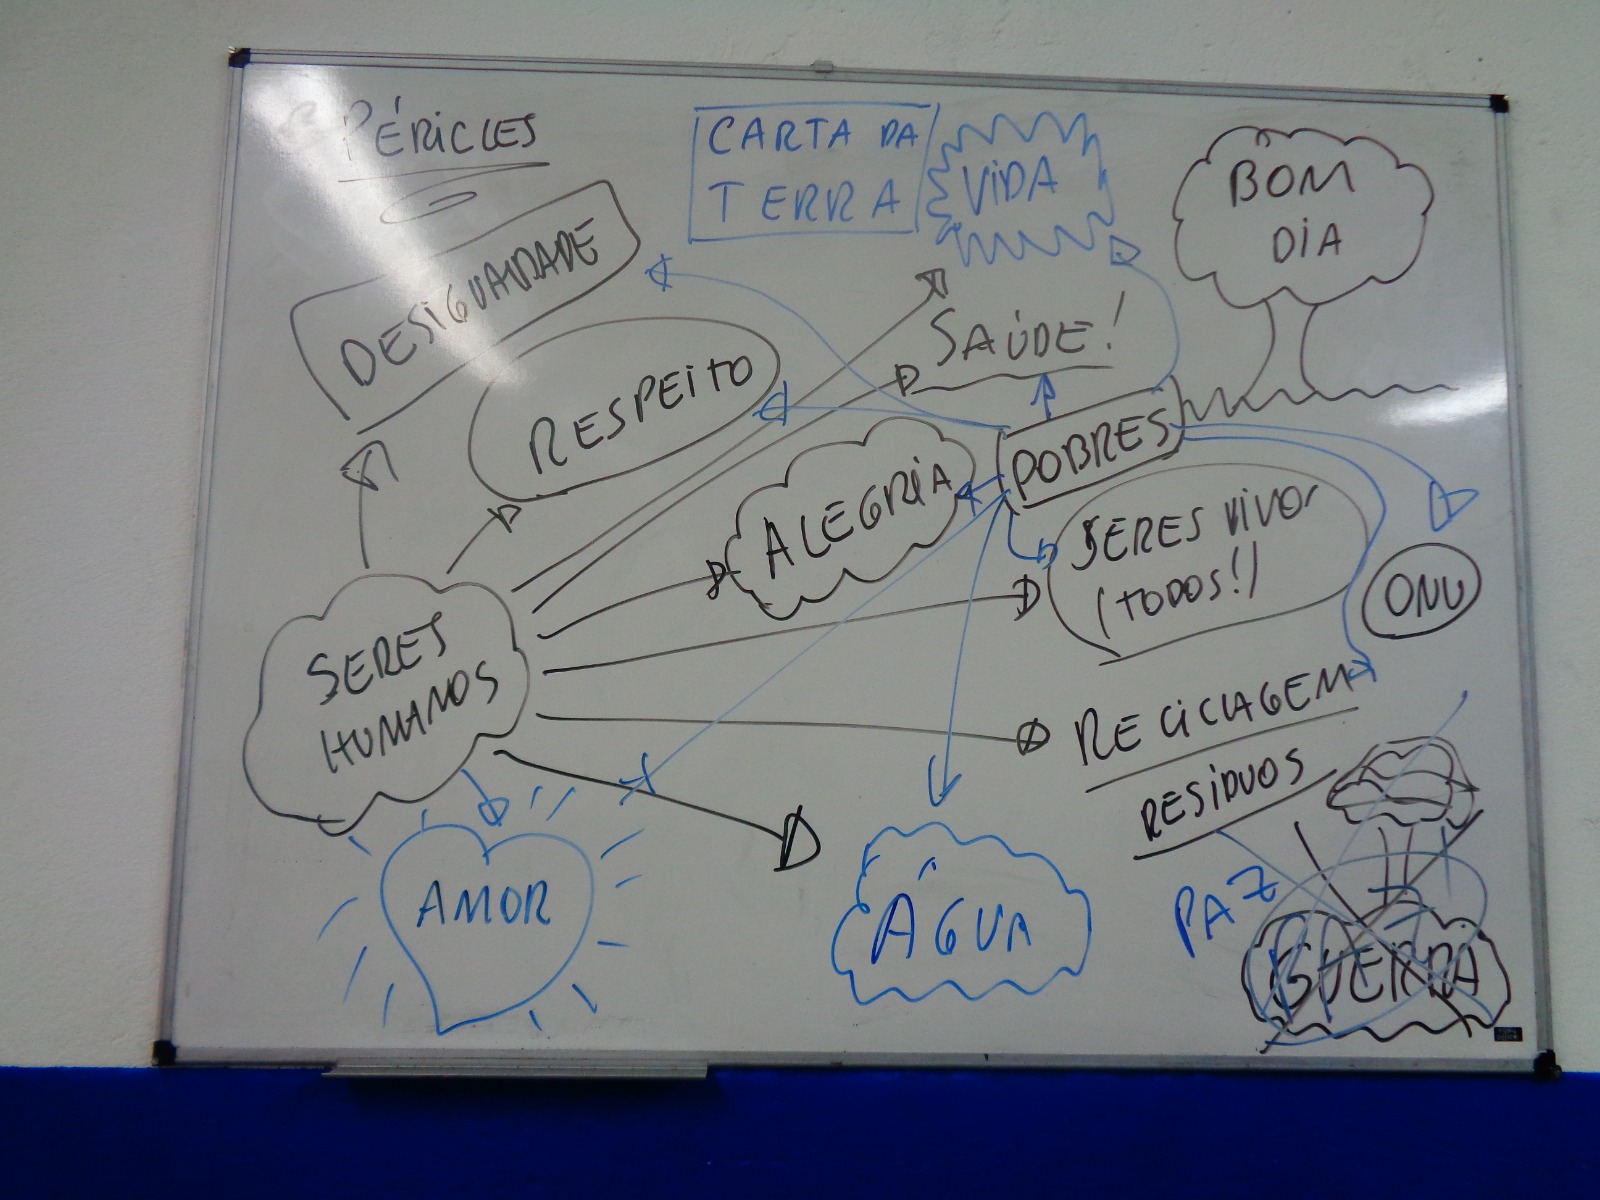 PÉRICLES
CARTA DA
TERRA
VIDA
BOM
DIA
DESIGUALDADE
SAÚDE!
RESPEITO
POBRES
ALEGRIA
SERES VIVOS
(TODOS!)
ONU
SERES
HUMANOS
RECICLAGEM
RESÍDUOS
AMOR
ÁGUA
PAZ
GUERRA